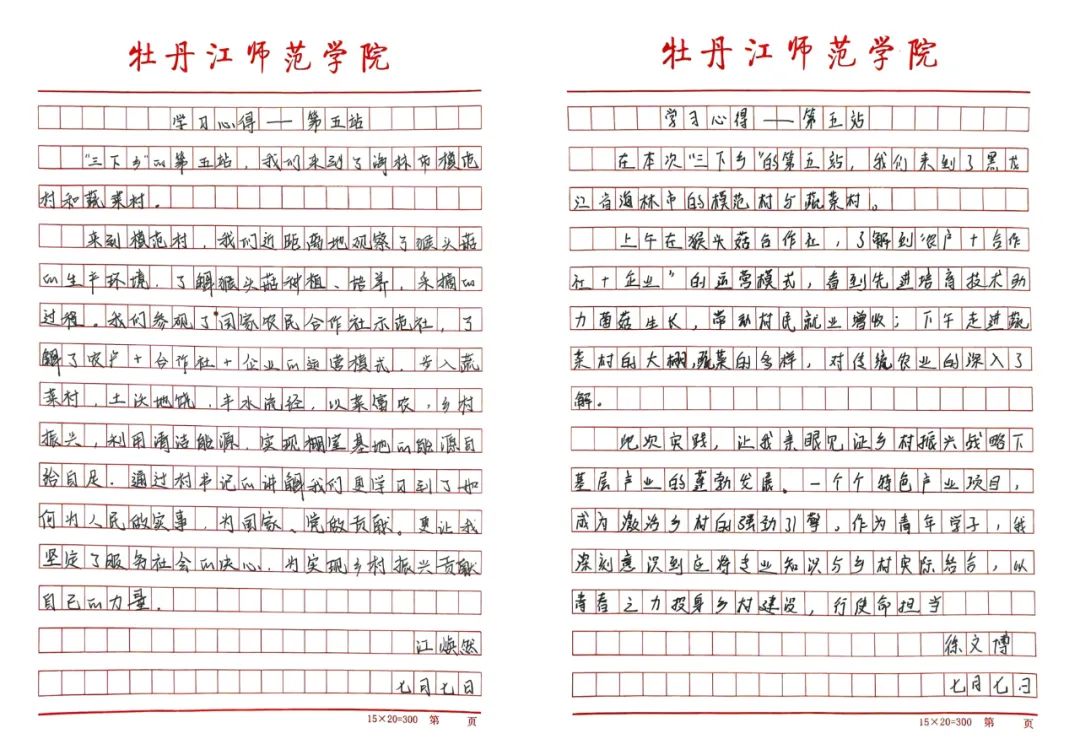 牡丹江师范学院
学习心得——第五站
"三下乡"的第五站，我们来到了海林市模范
村和蔬菜村。
来到模范村，我们近距离地观察了猴头菇
的生产环境，了解猴头菇种植、培养，采摘的
过程。我们参观了国家农民合作社示范社，了
解了农户+合作社+企业的运营模式，步入蔬
菜村，土沃地饶，丰水流经，以菜富农，乡村
振兴，利用清洁能源，实现棚室基地的能源自
给自足，通过村书记的讲解我们更学习到了如
何为人民做实事，为国家、党做贡献。更让我
坚定了服务社会的决心，为实现乡村振兴贡献
自己的力量。
江焕然
七月七日
15×20=300 第 页
牡丹江师范学院
学习心得——第五站
在本次"三下乡"的第五站，我们来到了黑龙
江省海林市的模范村与蔬菜村。
上午在猴头菇合作社，了解到"农户+合作
社+企业"的运营模式，看到先进培育技术助
力菌菇生长，带动村民就业增收；下午走进蔬
菜村的大棚，蔬菜的多样，对传统农业的深入了
解。
此次实践，让我亲眼见证乡村振兴战略下
基层产业的蓬勃发展。一个个特色产业项目，
成为激活乡村的强劲引擎。作为青年学子，我
深刻意识到应将专业知识与乡村实际结合，以
青春之力投身乡村建设，行使命担当
徐文博
七月七日
15×20=300 第 页